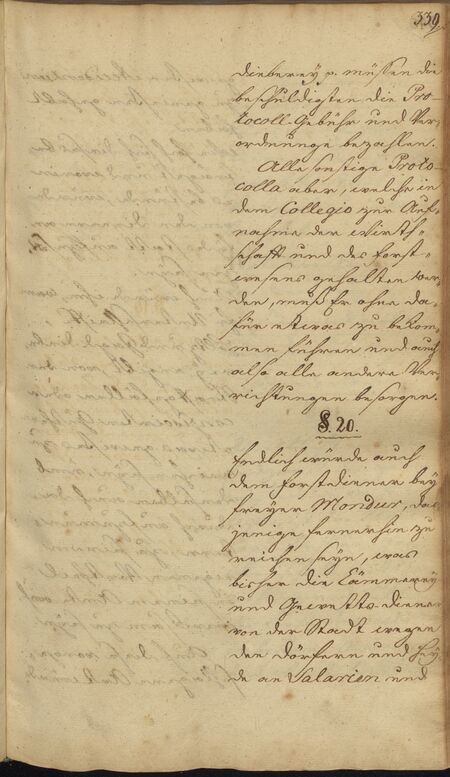 339
dieberey p. müssen die
beschuldigten die Pro-
tocoll-Gebühr und Ver-
ordnunge bezahlen.
Alle sonstige Proto-
colla aber, welche in
dem Collegio zur Auf-
nahme der Wirth-
schafft und des Forst-
wesens gehalten wer-
den, muß Er ohne da-
für etwas zu bekom-
men führen und auch
also alle andere Ver-
richtungen besorgen.
§. 20.
Endlich würde auch
dem Forstdiener bey
freyer Mondur, das
jenige fernerhin zu
reichen seyn, was
bisher die Cämmerey
und Gewetts-diener
von der Stadt wegen
den Dörfern und Hey-
de an Salarien und